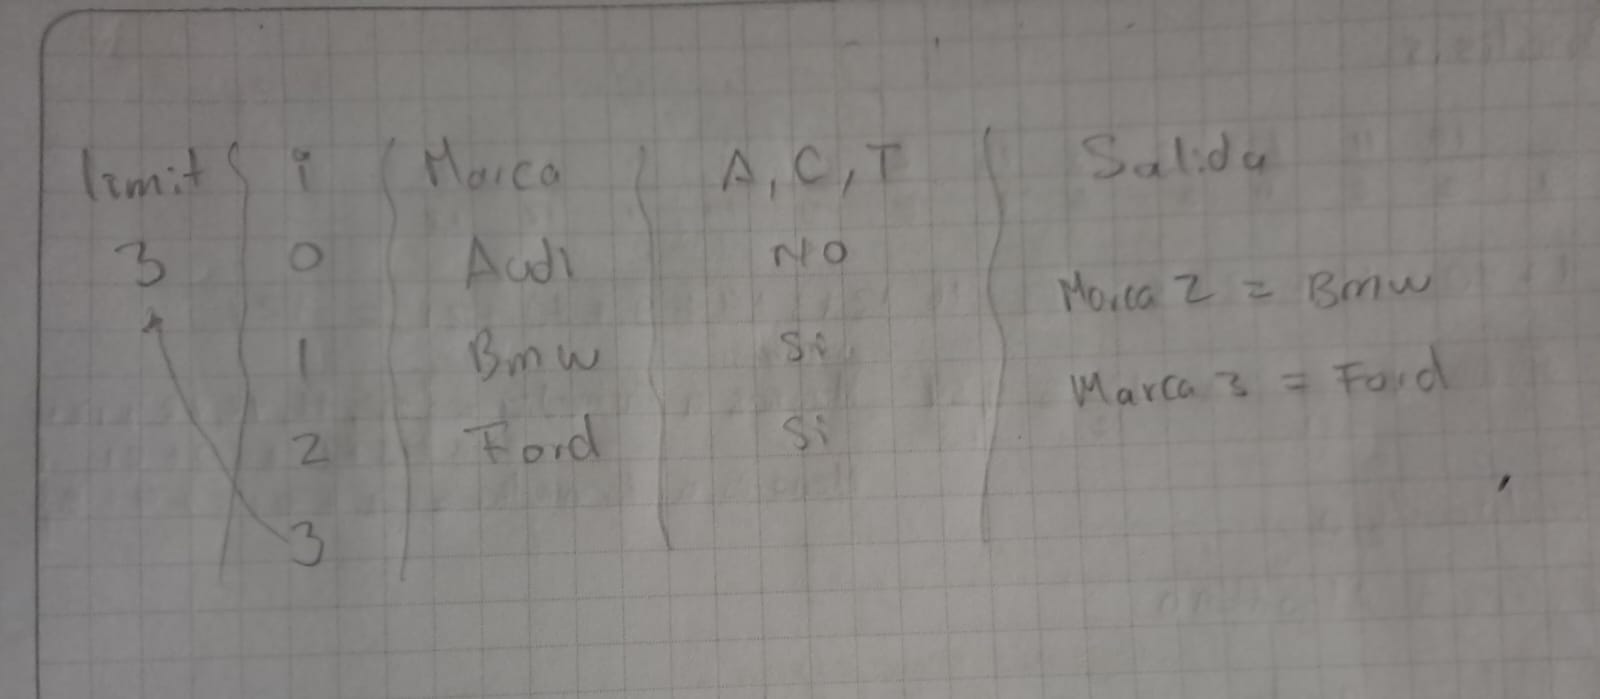 limit i Marca A, C, T Salida
3 0 Audi NO
Marca 2 = Bmw
1 Bmw Si
Marca 3 = Ford
2 Ford Si
3